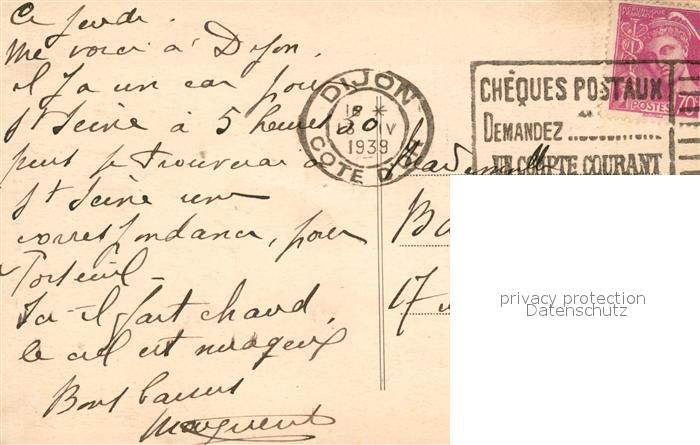 Ce jeudi.
Me voici à Dijon,
il y a un car pour
St Seine à 5 heures 20
puis je trouverai à
St Seine une
correspondance, pour
Ici il fait chaud,
le ciel est nuageux
Bons baisers
Marguerite
DIJON
18 *
IV
1939
COTE D'OR
CHÈQUES POSTAUX
DEMANDEZ
UN COMPTE COURANT
RÉPUBLIQUE
FRANÇAISE
POSTES 70c
Mademoiselle
Ba
17
privacy protection
Datenschutz